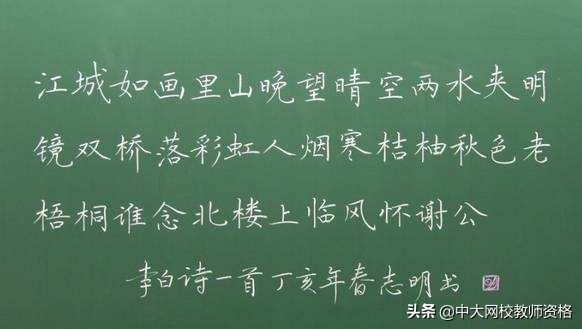 江城如画里山晚望晴空两水夹明
镜双桥落彩虹人烟寒桔柚秋色老
梧桐谁念北楼上临风怀谢公
李白诗一首丁亥年春志明书
头条 @中大网校教师资格